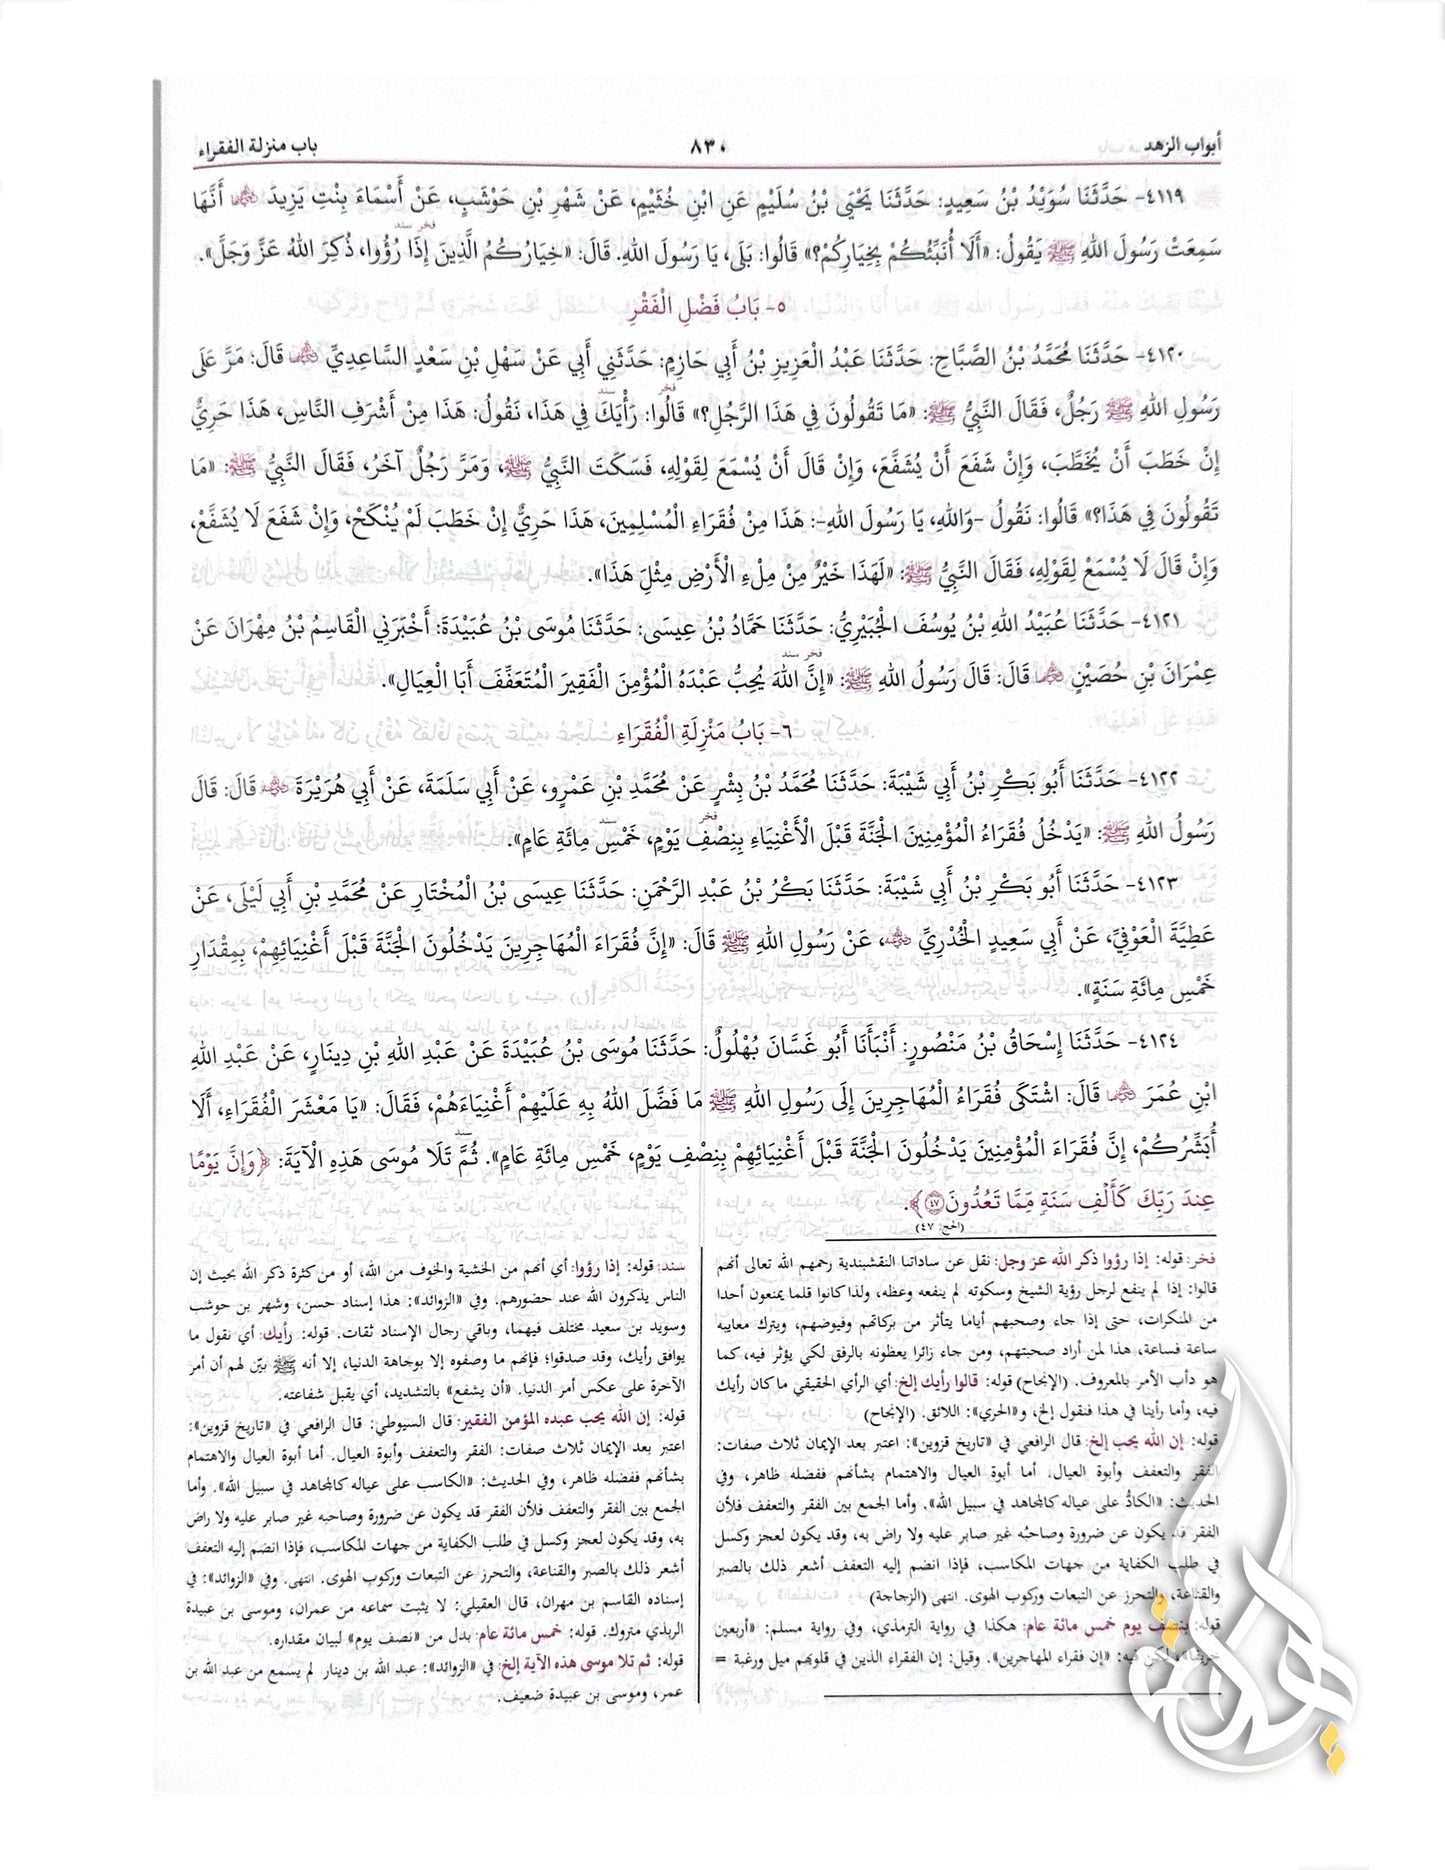 أبواب الزهد
٨٣٠
باب منزلة الفقراء
٤١١٩- حَدَّثَنَا سُوَيْدُ بْنُ سَعِيدٍ: حَدَّثَنَا يَحْيَى بْنُ سُلَيْمٍ عَنِ ابْنِ خُثَيْمٍ، عَنْ شَهْرِ بْنِ حَوْشَبٍ، عَنْ أَسْمَاءَ بِنْتِ يَزِيدَ ﵂ أَنَّهَا
سَمِعَتْ رَسُولَ اللهِ ﷺ يَقُولُ: «أَلَا أُنَبِّئُكُمْ بِخِيَارِكُمْ؟» قَالُوا: بَلَى، يَا رَسُولَ اللهِ. قَالَ: «خِيَارُكُمُ الَّذِينَ إِذَا رُؤُوا، ذُكِرَ اللهُ عَزَّ وَجَلَّ».
فخر سند
٥- بَابُ فَضْلِ الْفَقْرِ
٤١٢٠- حَدَّثَنَا مُحَمَّدُ بْنُ الصَّبَّاحِ: حَدَّثَنَا عَبْدُ الْعَزِيزِ بْنُ أَبِي حَازِمٍ: حَدَّثَنِي أَبِي عَنْ سَهْلِ بْنِ سَعْدٍ السَّاعِدِيِّ ﵄ قَالَ: مَرَّ عَلَى
رَسُولِ اللهِ ﷺ رَجُلٌ، فَقَالَ النَّبِيُّ ﷺ: «مَا تَقُولُونَ فِي هَذَا الرَّجُلِ؟» قَالُوا: رَأْيَكَ فِي هَذَا، نَقُولُ: هَذَا مِنْ أَشْرَفِ النَّاسِ، هَذَا حَرِيٌّ
فخر سند
إِنْ خَطَبَ أَنْ يُخَطَّبَ، وَإِنْ شَفَعَ أَنْ يُشَفَّعَ، وَإِنْ قَالَ أَنْ يُسْمَعَ لِقَوْلِهِ، فَسَكَتَ النَّبِيُّ ﷺ، وَمَرَّ رَجُلٌ آخَرُ، فَقَالَ النَّبِيُّ ﷺ: «مَا
تَقُولُونَ فِي هَذَا؟» قَالُوا: نَقُولُ -وَاللهِ، يَا رَسُولَ اللهِ-: هَذَا مِنْ فُقَرَاءِ الْمُسْلِمِينَ، هَذَا حَرِيٌّ إِنْ خَطَبَ لَمْ يُنْكَحْ، وَإِنْ شَفَعَ لَا يُشَفَّعْ،
وَإِنْ قَالَ لَا يُسْمَعْ لِقَوْلِهِ، فَقَالَ النَّبِيُّ ﷺ: «لَهَذَا خَيْرٌ مِنْ مِلْءِ الْأَرْضِ مِثْلَ هَذَا».
٤١٢١- حَدَّثَنَا عُبَيْدُ اللهِ بْنُ يُوسُفَ الْجُبَيْرِيُّ: حَدَّثَنَا حَمَّادُ بْنُ عِيسَى: حَدَّثَنَا مُوسَى بْنُ عُبَيْدَةَ: أَخْبَرَنِي الْقَاسِمُ بْنُ مِهْرَانَ عَنْ
عِمْرَانَ بْنِ حُصَيْنٍ ﵄ قَالَ: قَالَ رَسُولُ اللهِ ﷺ: «إِنَّ اللهَ يُحِبُّ عَبْدَهُ الْمُؤْمِنَ الْفَقِيرَ الْمُتَعَفِّفَ أَبَا الْعِيَالِ».
فخر سند
٦- بَابُ مَنْزِلَةِ الْفُقَرَاءِ
٤١٢٢- حَدَّثَنَا أَبُو بَكْرِ بْنُ أَبِي شَيْبَةَ: حَدَّثَنَا مُحَمَّدُ بْنُ بِشْرٍ عَنْ مُحَمَّدِ بْنِ عَمْرٍو، عَنْ أَبِي سَلَمَةَ، عَنْ أَبِي هُرَيْرَةَ ﵁ قَالَ: قَالَ
رَسُولُ اللهِ ﷺ: «يَدْخُلُ فُقَرَاءُ الْمُؤْمِنِينَ الْجَنَّةَ قَبْلَ الْأَغْنِيَاءِ بِنِصْفِ يَوْمٍ، خَمْسِ مِائَةِ عَامٍ».
فخر سند
٤١٢٣- حَدَّثَنَا أَبُو بَكْرِ بْنُ أَبِي شَيْبَةَ: حَدَّثَنَا بَكْرُ بْنُ عَبْدِ الرَّحْمَنِ: حَدَّثَنَا عِيسَى بْنُ الْمُخْتَارِ عَنْ مُحَمَّدِ بْنِ أَبِي لَيْلَى، عَنْ
عَطِيَّةَ الْعَوْفِيِّ، عَنْ أَبِي سَعِيدٍ الْخُدْرِيِّ ﵁، عَنْ رَسُولِ اللهِ ﷺ قَالَ: «إِنَّ فُقَرَاءَ الْمُهَاجِرِينَ يَدْخُلُونَ الْجَنَّةَ قَبْلَ أَغْنِيَائِهِمْ، بِمِقْدَارِ
خَمْسِ مِائَةِ سَنَةٍ».
٤١٢٤- حَدَّثَنَا إِسْحَاقُ بْنُ مَنْصُورٍ: أَنْبَأَنَا أَبُو غَسَّانَ بُهْلُولٌ: حَدَّثَنَا مُوسَى بْنُ عُبَيْدَةَ عَنْ عَبْدِ اللهِ بْنِ دِينَارٍ، عَنْ عَبْدِ اللهِ
ابْنِ عُمَرَ ﵄ قَالَ: اشْتَكَى فُقَرَاءُ الْمُهَاجِرِينَ إِلَى رَسُولِ اللهِ ﷺ مَا فَضَّلَ اللهُ بِهِ عَلَيْهِمْ أَغْنِيَاءَهُمْ، فَقَالَ: «يَا مَعْشَرَ الْفُقَرَاءِ، أَلَا
أُبَشِّرُكُمْ، إِنَّ فُقَرَاءَ الْمُؤْمِنِينَ يَدْخُلُونَ الْجَنَّةَ قَبْلَ أَغْنِيَائِهِمْ بِنِصْفِ يَوْمٍ، خَمْسِ مِائَةِ عَامٍ». ثُمَّ تَلَا مُوسَى هَذِهِ الْآيَةَ: ﴿وَإِنَّ يَوْمًا
سند
عِندَ رَبِّكَ كَأَلْفِ سَنَةٍ مِّمَّا تَعُدُّونَ ٤٧﴾.
(الحج: ٤٧)
فخر: قوله: إذا رؤوا ذكر الله عز وجل: نقل عن ساداتنا النقشبندية رحمهم الله تعالى أنهم
قالوا: إذا لم ينفع لرجل رؤية الشيخ وسكوته لم ينفعه وعظه، ولذا كانوا قلما يمنعون أحدا
من المنكرات، حتى إذا جاء وصحبهم أياما يتأثر من بركاتهم وفيوضهم، ويترك معايبه
ساعة فساعة، هذا لمن أراد صحبتهم، ومن جاء زائرا يعظونه بالرفق لكي يؤثر فيه، كما
هو دأب الأمر بالمعروف. (الإنجاح) قوله: قالوا رأيك إلخ: أي الرأي الحقيقي ما كان رأيك
فيه، وأما رأينا في هذا فنقول إلخ، و«الحري»: اللائق. (الإنجاح)
قوله: إن الله يحب إلخ: قال الرافعي في «تاريخ قزوين»: اعتبر بعد الإيمان ثلاث صفات:
الفقر والتعفف وأبوة العيال. أما أبوة العيال والاهتمام بشأنهم ففضله ظاهر، وفي
الحديث: «الكادُّ على عياله كالمجاهد في سبيل الله». وأما الجمع بين الفقر والتعفف فلأن
الفقر قد يكون عن ضرورة وصاحبُه غير صابر عليه ولا راض به، وقد يكون لعجز وكسل
في طلب الكفاية من جهات المكاسب، فإذا انضم إليه التعفف أشعر ذلك بالصبر
والقناعة، والتحرز عن التبعات وركوب الهوى. انتهى (الزجاجة)
قوله: بنصف يوم خمس مائة عام: هكذا في رواية الترمذي، وفي رواية مسلم: «أربعين
خريفا»، لكن فيه: «إن فقراء المهاجرين». وقيل: إن الفقراء الذين في قلوبهم ميل ورغبة =
سند: قوله: إذا رؤوا: أي أنهم من الخشية والخوف من الله، أو من كثرة ذكر الله بحيث إن
الناس يذكرون الله عند حضورهم. وفي «الزوائد»: هذا إسناد حسن، وشهر بن حوشب
وسويد بن سعيد مختلف فيهما، وباقي رجال الإسناد ثقات. قوله: رأيك: أي نقول ما
يوافق رأيك، وقد صدقوا؛ فإنهم ما وصفوه إلا بوجاهة الدنيا، إلا أنه ﷺ بيّن لهم أن أمر
الآخرة على عكس أمر الدنيا. «أن يشفع» بالتشديد، أي يقبل شفاعته.
قوله: إن الله يحب عبده المؤمن الفقير: قال السيوطي: قال الرافعي في «تاريخ قزوين»:
اعتبر بعد الإيمان ثلاث صفات: الفقر والتعفف وأبوة العيال. أما أبوة العيال والاهتمام
بشأنهم ففضله ظاهر، وفي الحديث: «الكاسب على عياله كالمجاهد في سبيل الله». وأما
الجمع بين الفقر والتعفف فلأن الفقر قد يكون عن ضرورة وصاحبه غير صابر عليه ولا راض
به، وقد يكون لعجز وكسل في طلب الكفاية من جهات المكاسب، فإذا انضم إليه التعفف
أشعر ذلك بالصبر والقناعة، والتحرز عن التبعات وركوب الهوى. انتهى. وفي «الزوائد»: في
إسناده القاسم بن مهران، قال العقيلي: لا يثبت سماعه من عمران، وموسى بن عبيدة
الربذي متروك. قوله: خمس مائة عام: بدل من «نصف يوم» لبيان مقداره.
قوله: ثم تلا موسى هذه الآية إلخ: في «الزوائد»: عبد الله بن دينار لم يسمع من عبد الله بن
عمر، وموسى بن عبيدة ضعيف.